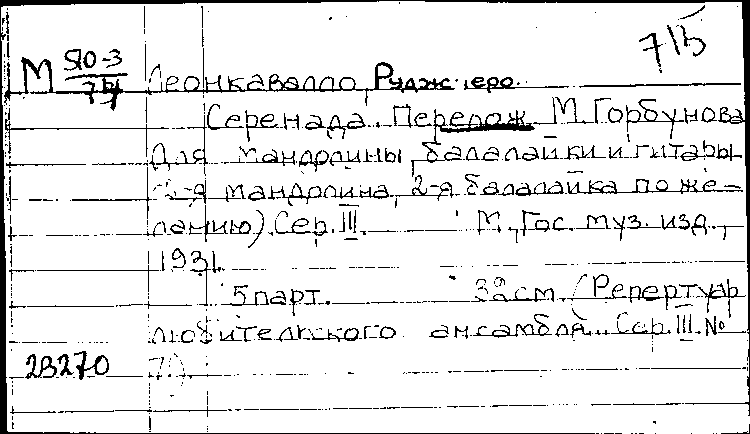 715
М 510-3
Леонкавалло, Руджиеро.
Серенада. Перелож. М. Горбунова
для мандолины, балалайки и гитары
(2-я мандолина, 2-я балалайка по же-
ланию). Сер. III. М., Гос. муз. изд.,
1931.
5 парт. 32 см. (Репертуар
любительского ансамбля. Сер. III. №
23270 7.).